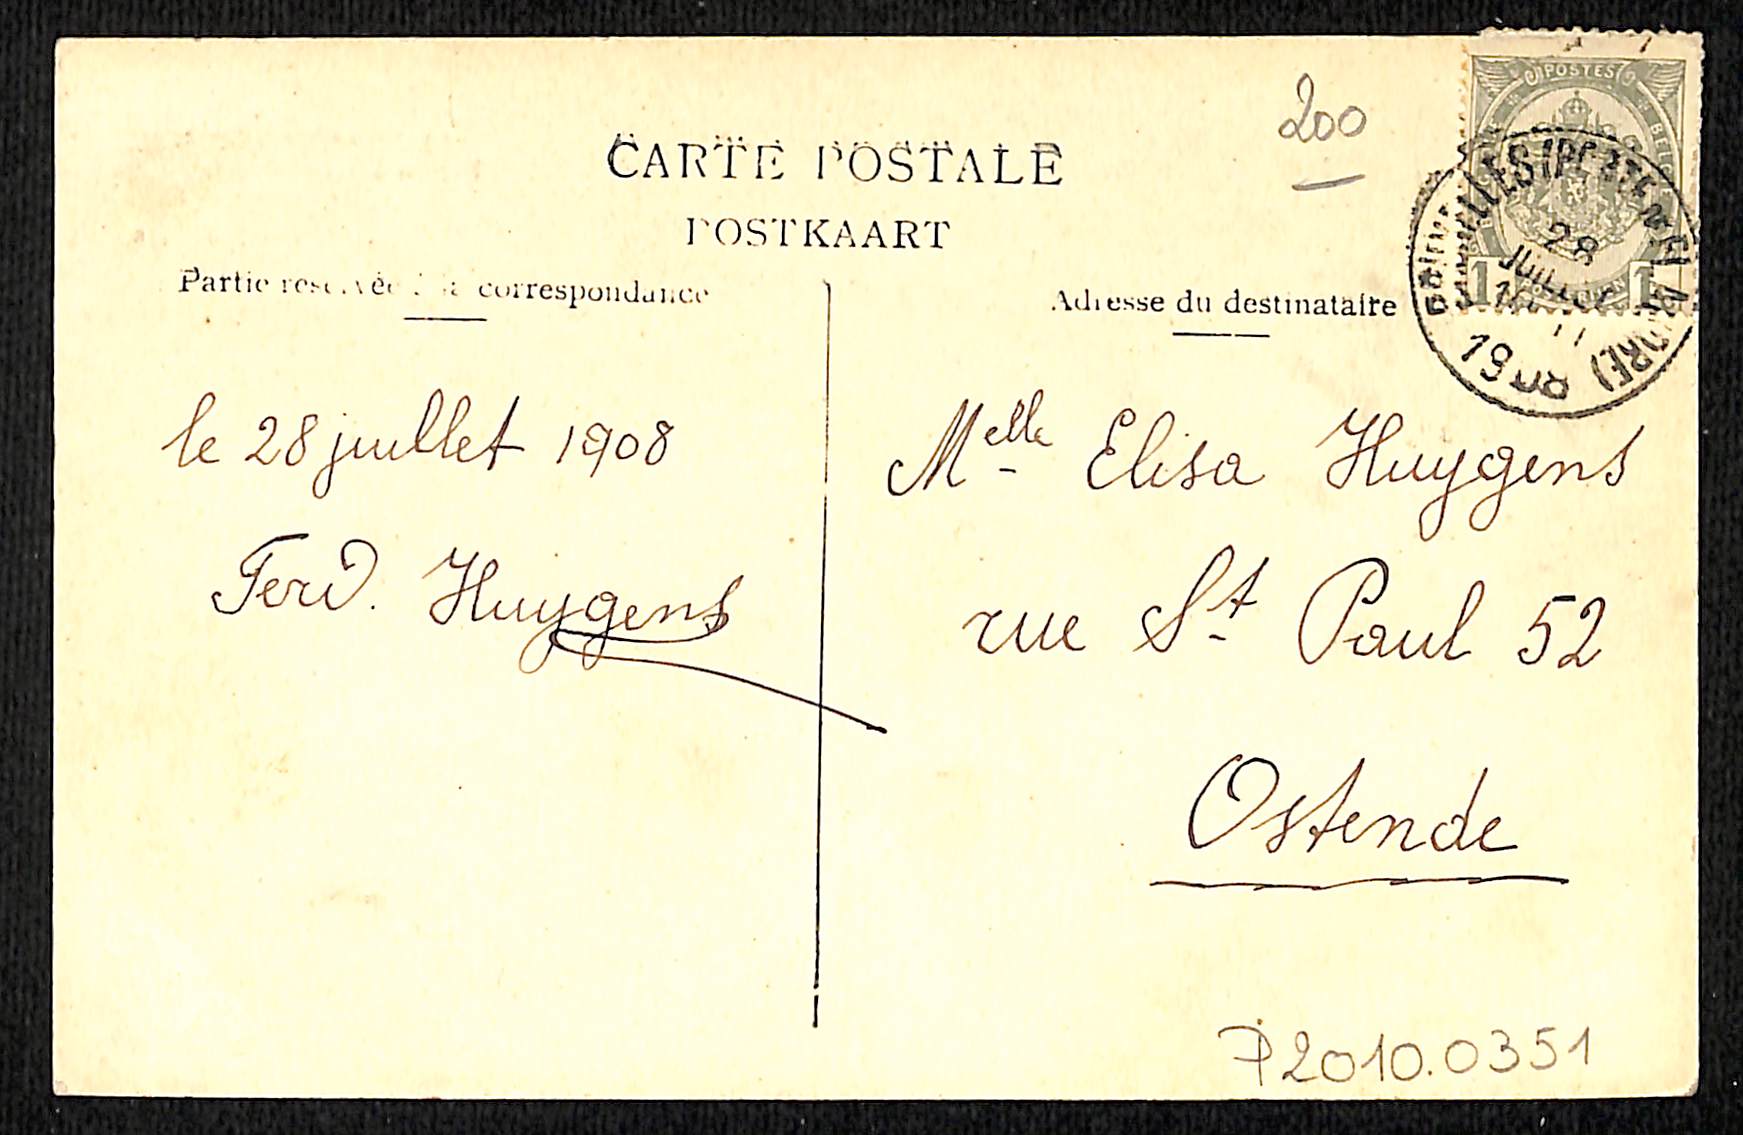 CARTE POSTALE
POSTKAART
200
Partie reservée à la correspondance
Adresse du destinataire
POSTES
28
JUILLET
11
1908
1 1
le 28 juillet 1908
Ferd. Huygens
Melle Elisa Huygens
rue St Paul 52
Ostende
P2010.0351